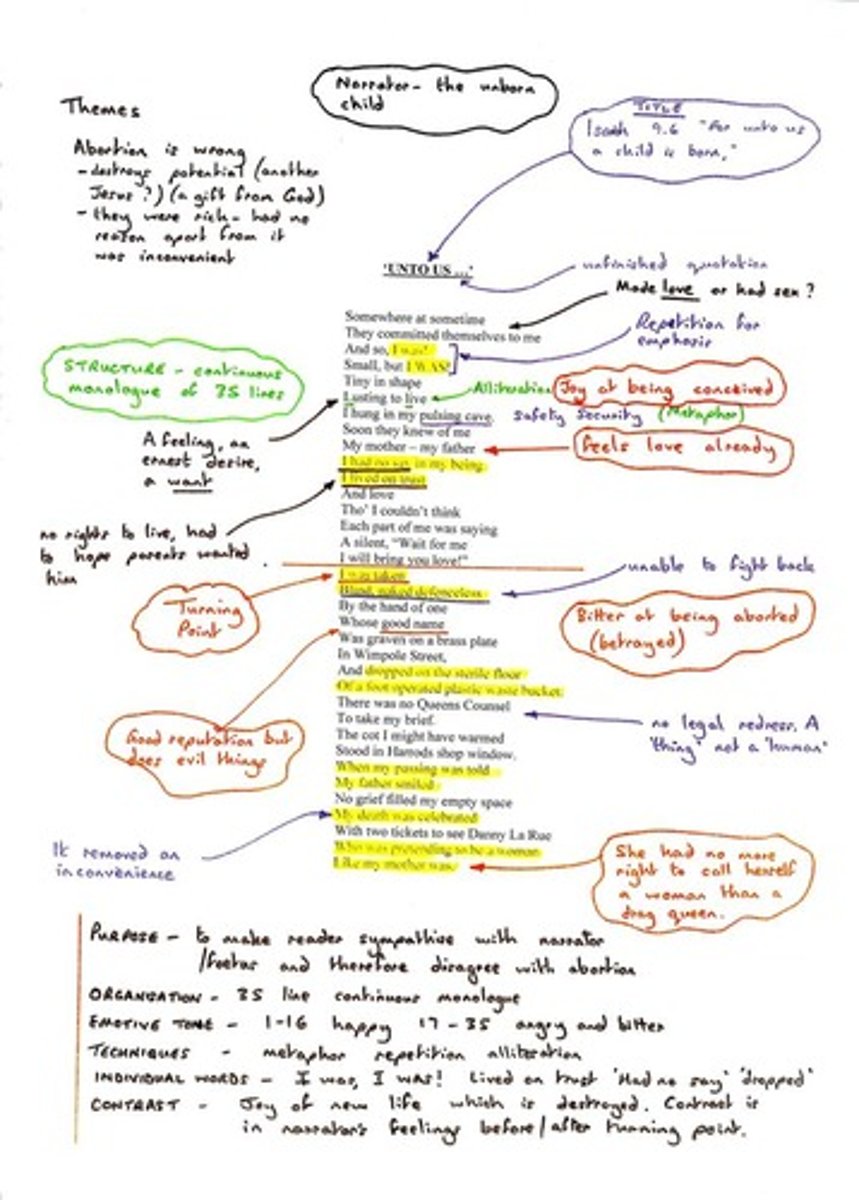 Narrator - the unborn
child
Themes
Abortion is wrong
- destroys potential (another
Jesus?) (a gift from God)
- they were rich - had no
reason apart from it
was inconvenient
TITLE
Isaiah 9.6 "For unto us
a child is born,"
'UNTO US ...'
unfinished quotation
Made love or had sex?
Repetition for
emphasis
STRUCTURE - continuous
monologue of 35 lines
Somewhere at sometime
They committed themselves to me
And so, I was!
Small, but I WAS!
Tiny in shape
Lusting to live
I hung in my pulsing cave.
Soon they knew of me
My mother – my father
I had no say in my being
I lived on trust
And love
Tho' I couldn't think
Each part of me was saying
A silent, "Wait for me
I will bring you love!"
I was taken
Blind, naked defenceless
By the hand of one
Whose good name
Was graven on a brass plate
In Wimpole Street,
And dropped on the sterile floor
Of a foot operated plastic waste bucket.
There was no Queens Counsel
To take my brief.
The cot I might have warmed
Stood in Harrods shop window.
When my passing was told
My father smiled.
No grief filled my empty space
My death was celebrated
With two tickets to see Danny La Rue
Who was pretending to be a woman
Like my mother was.
Alliteration
Joy at being conceived
safety security (Metaphor)
feels love already
A feeling, an
ernest desire,
a want
no rights to live, had
to hope parents wanted
him
unable to fight back
Turning
Point
Bitter at being aborted
(betrayed)
Good reputation but
does evil things
no legal redress. A
'thing' not a 'human'
It removed an
inconvenience
She had no more
right to call herself
a woman than a
drag queen.
PURPOSE - to make reader sympathise with narrator
/foetus and therefore disagree with abortion
ORGANISATION - 35 line continuous monologue
EMOTIVE TONE - 1-16 happy 17-35 angry and bitter
TECHNIQUES - metaphor repetition alliteration
INDIVIDUAL WORDS - I was, I was! Lived on trust 'Had no say' 'dropped'
CONTRAST - Joy of new life which is destroyed. Contrast is
in narrator's feelings before/after turning point.